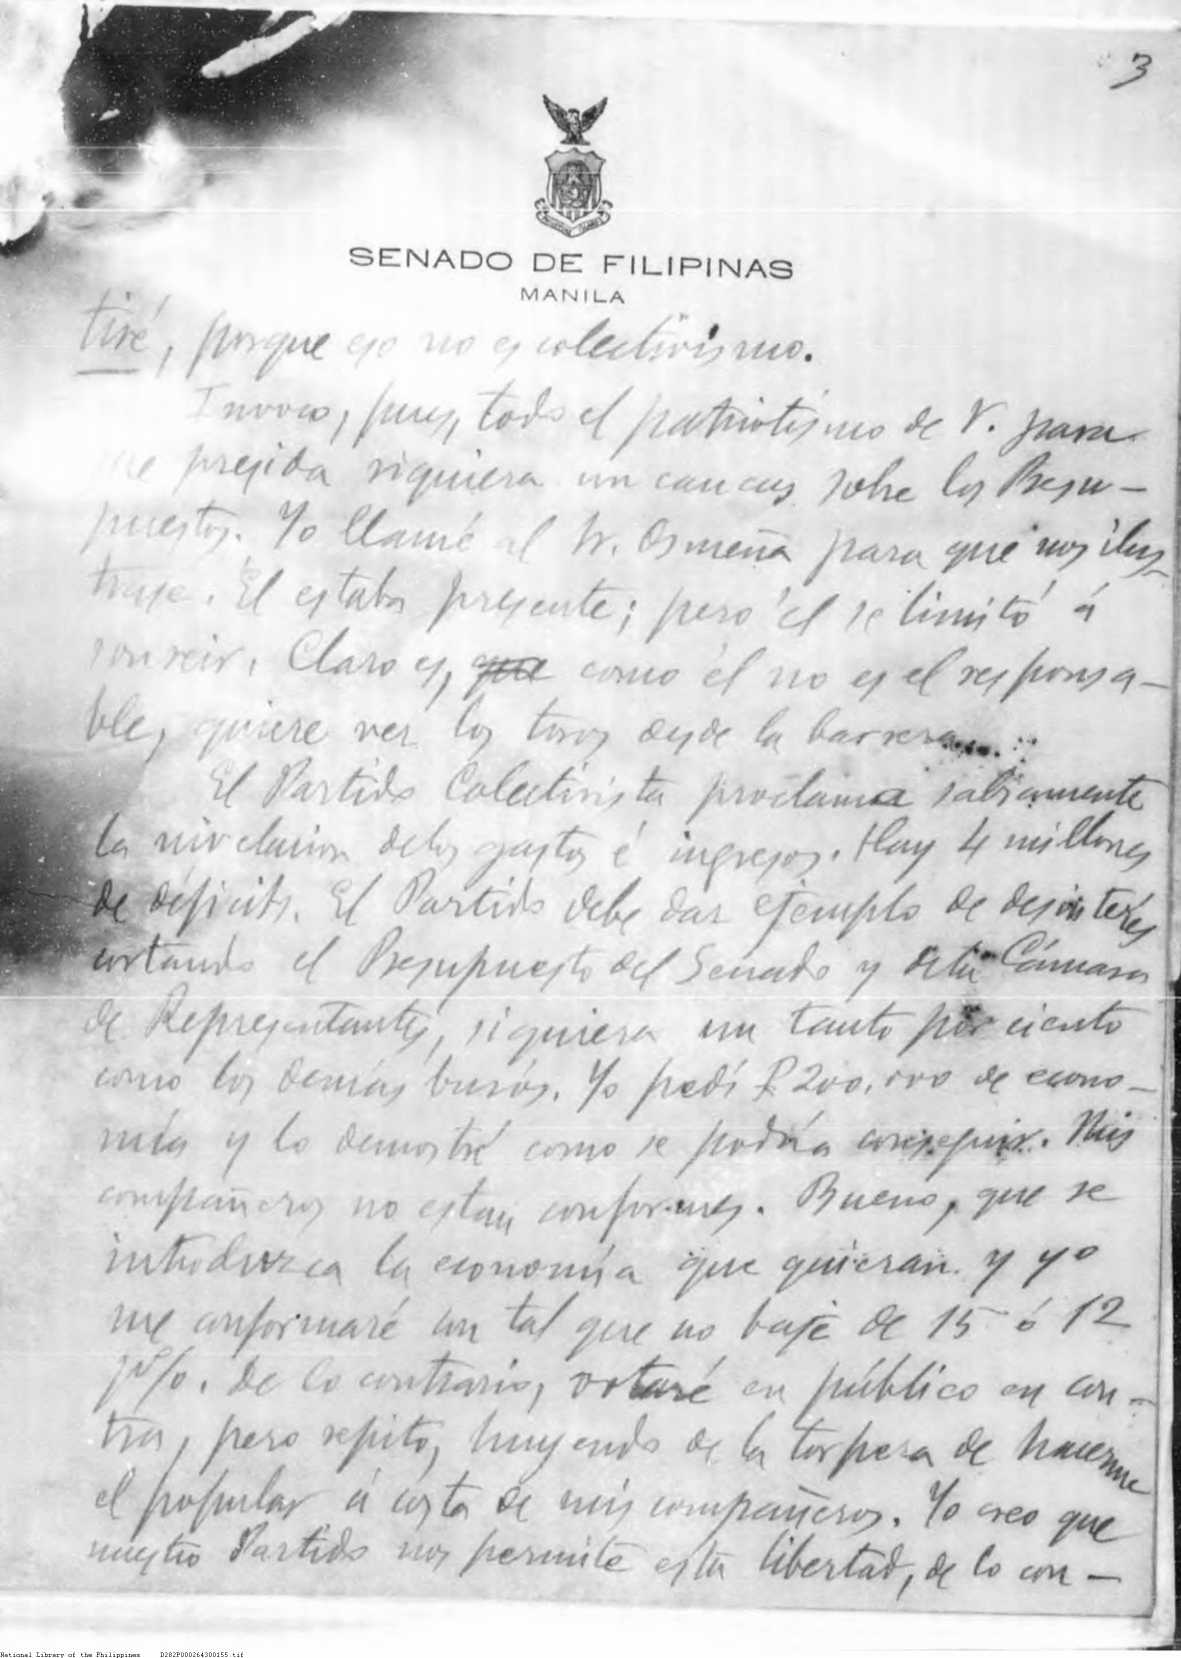 3
SENADO DE FILIPINAS
MANILA
tiré, porque eso no es colectivismo.
Invoco, pues, todo el patriotismo de V. para
que presida siquiera un caucus sobre los Presu-
puestos. Yo llamé al Sr. Osmeña para que nos ilus-
trase. El estaba presente; pero él se limitó á
sonreir. Claro es, que como él no es el responsa-
ble, quiere ver los toros desde la barrera....
El Partido Colectivista proclama sabiamente
la nivelacion de los gastos é ingresos. Hay 4 millones
de déficits. El Partido debe dar ejemplo de desinterés
cortando el Presupuesto del Senado y de la Cámara
de Representantes, siquiera un tanto por ciento
como los demás burós. Yo pedí ₱200.000 de econo-
mía y lo demostré como se podría conseguir. Mis
compañeros no estan conformes. Bueno, que se
introduzca la economía que quieran y yo
me conformaré con tal que no baje de 15 ó 12
p%. De lo contrario, votaré en público en con-
tra, pero repito, huyendo de la torpeza de hacerme
el popular á costa de mis compañeros. Yo creo que
nuestro Partido nos permite esta libertad, de lo con-
National Library of the Philippines D282P000264300155.tif